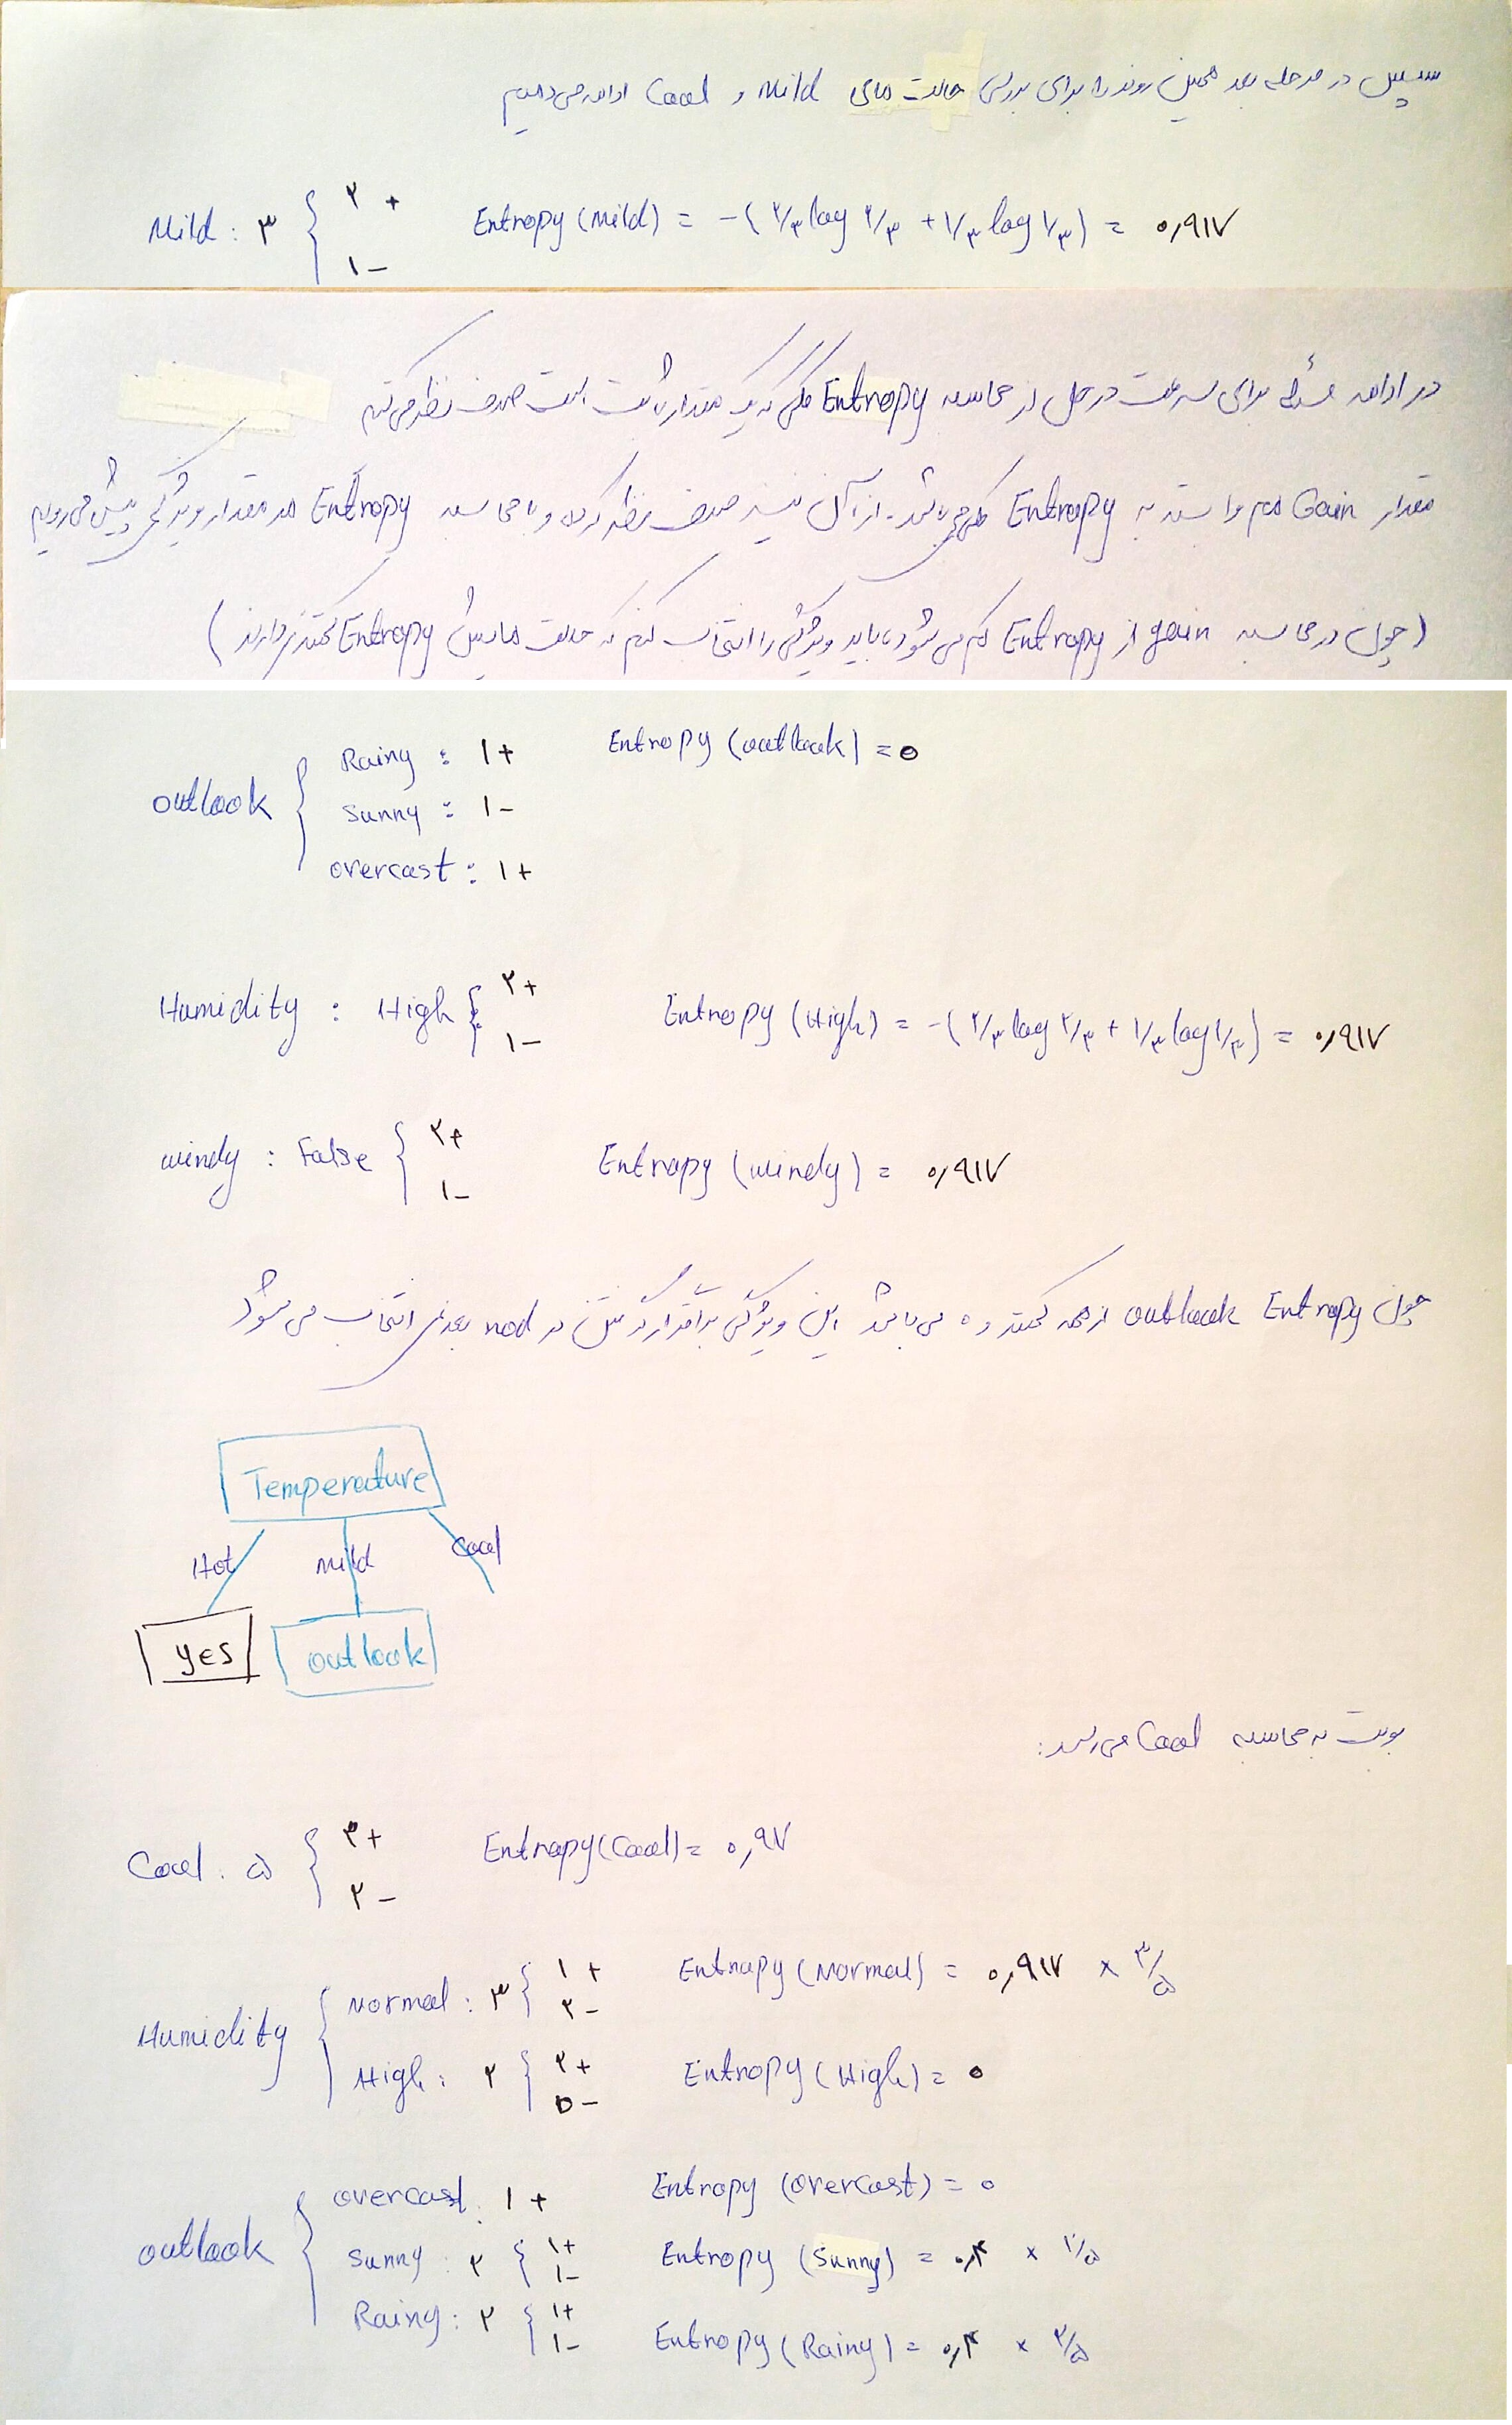 سپس در مرحله بعد همین روند را برای بررسی حالت های Mild و Cool ادامه می دهیم
Mild : ۳ { ۲ + ۱ - Entropy (Mild) = -( ۲/۳ log ۲/۳ + ۱/۳ log ۱/۳ ) = ۰٫۹۱۷
در ادامه مسئله برای سرعت در حل از محاسبه Entropy کلی که یک مقدار ثابت است صرف نظر می کنیم
مقدار Gain هم وابسته به Entropy کلی می باشد. از آن نیز صرف نظر کرده و با محاسبه Entropy هر مقدار ویژگی پیش می رویم
(چون در محاسبه gain از Entropy کم می شود، باید ویژگی را انتخاب کنیم که حالت هایش Entropy کمتری دارند)
outlook { Rainy : ۱+ Entropy (outlook) = ۰
Sunny : ۱-
overcast : ۱+
Humidity : High { ۲+ ۱- Entropy (High) = -( ۲/۳ log ۲/۳ + ۱/۳ log ۱/۳ ) = ۰٫۹۱۷
windy : False { ۲+ ۱- Entropy (windy) = ۰٫۹۱۷
چون Entropy outlook از همه کمتر و ۰ می باشد این ویژگی برای قرار گرفتن در nod بعدی انتخاب می شود
Temperature
Hot Mild Cool
yes outlook
نوبت به محاسبه Cool می رسد:
Cool . ۵ { ۳+ ۲- Entropy(Cool) = ۰٫۹۷
Humidity { Normal : ۳ { ۱+ ۲- Entropy (Normal) = ۰٫۹۱۷ × ۳/۵
High : ۲ { ۲+ ۰- Entropy (High) = ۰
outlook { overcast : ۱+ Entropy (overcast) = ۰
Sunny : ۲ { ۱+ ۱- Entropy (Sunny) = ۰٫۴ ×
Rainy : ۲ { ۱+ ۱- Entropy (Rainy) = ۰٫۴ × ۲/۵